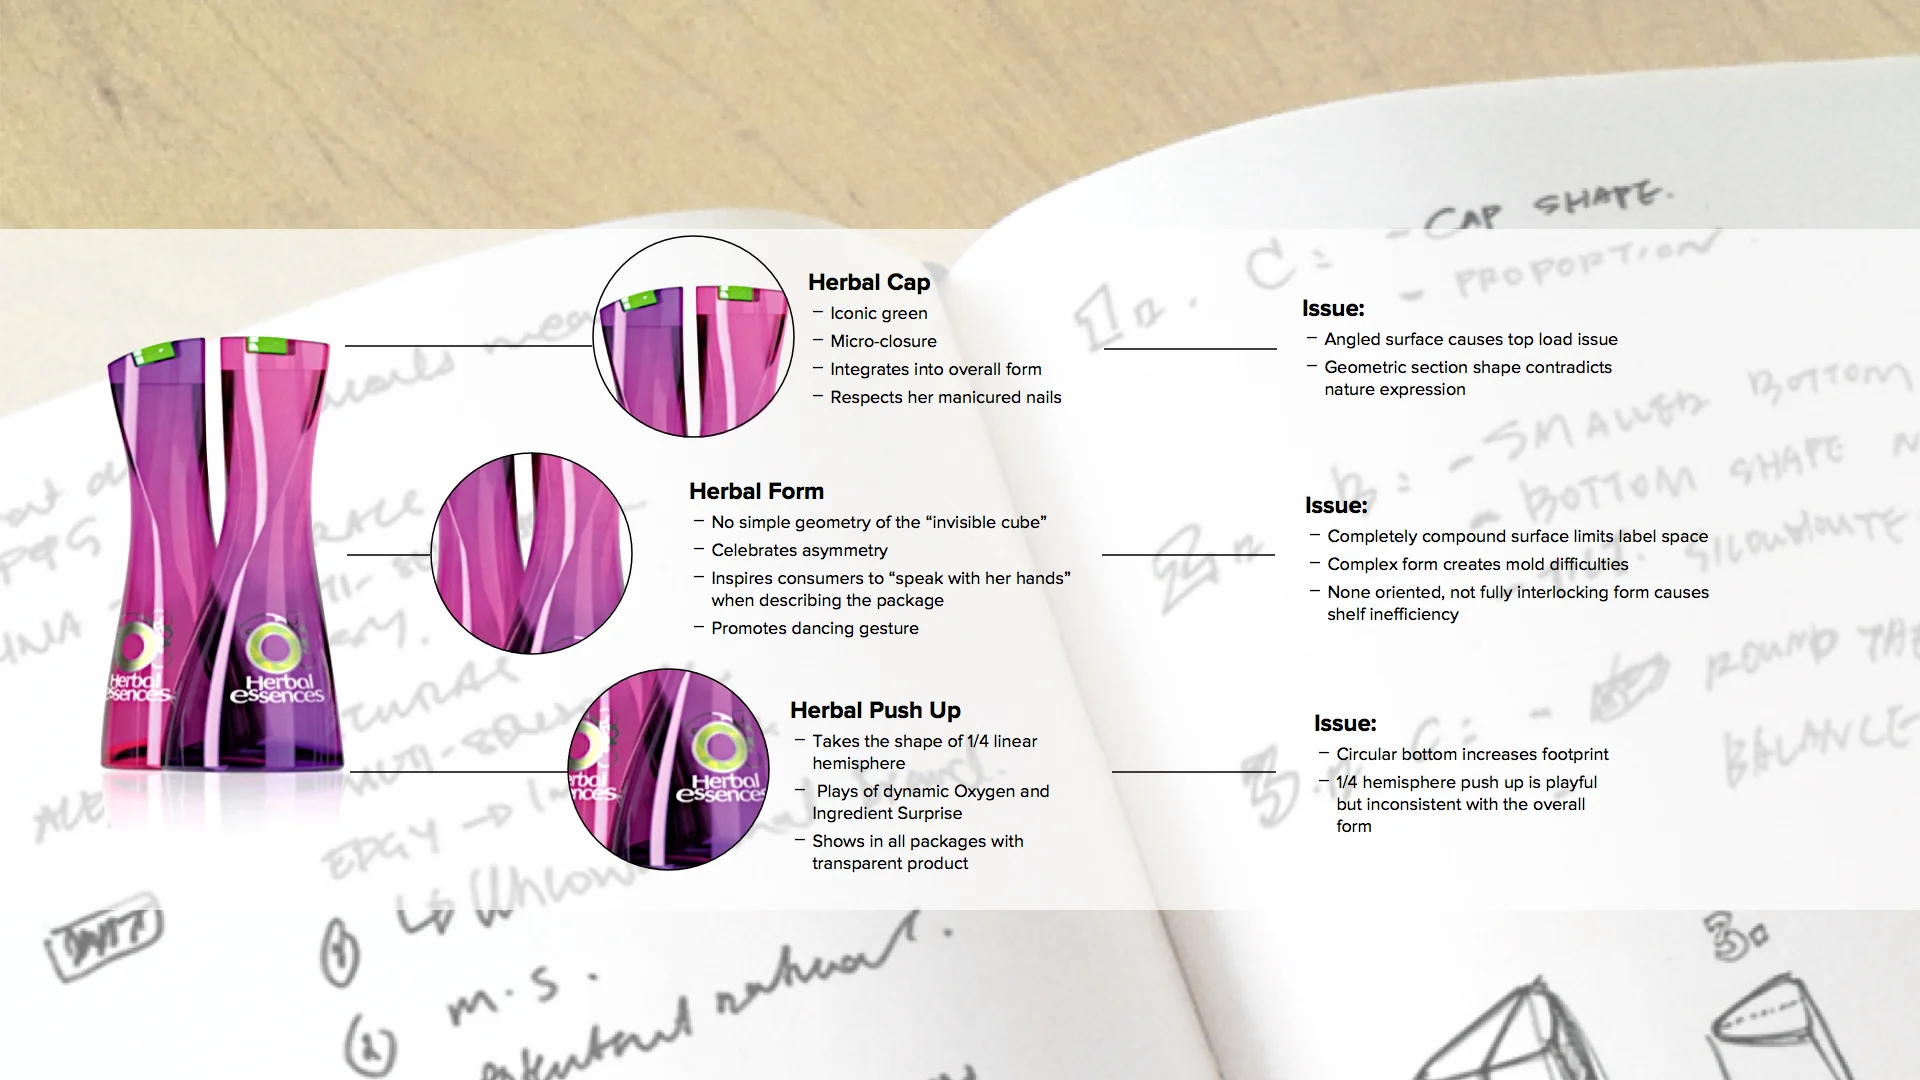 - CAP SHAPE.
1. C: - PROPORTION
Herbal Cap
– Iconic green
– Micro-closure
– Integrates into overall form
– Respects her manicured nails
Issue:
– Angled surface causes top load issue
– Geometric section shape contradicts
nature expression
- SMALLER BOTTOM
- BOTTOM SHAPE
Herbal Form
– No simple geometry of the “invisible cube”
– Celebrates asymmetry
– Inspires consumers to “speak with her hands”
when describing the package
– Promotes dancing gesture
2.
Issue:
– Completely compound surface limits label space
– Complex form creates mold difficulties
– None oriented, not fully interlocking form causes
shelf inefficiency
Herbal
essences
Herbal
essences
Herbal
essences
Herbal Push Up
– Takes the shape of 1/4 linear
hemisphere
– Plays of dynamic Oxygen and
Ingredient Surprise
– Shows in all packages with
transparent product
3. C: -
ROUND
BALANCE
Issue:
– Circular bottom increases footprint
– 1/4 hemisphere push up is playful
but inconsistent with the overall
form
EDGY →
1
m.s.
2
3.